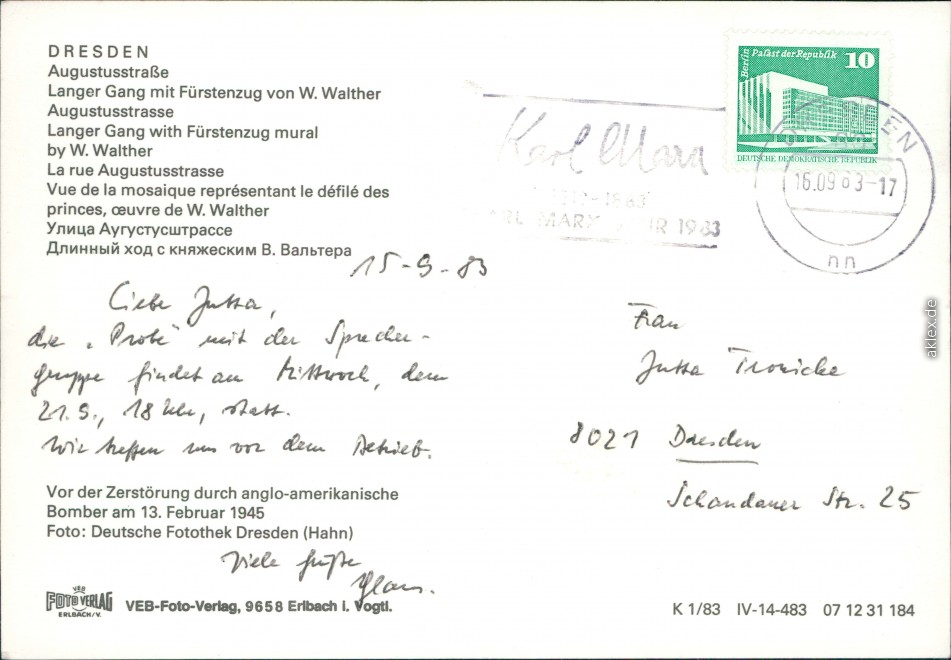 DRESDEN
Augustusstraße
Langer Gang mit Fürstenzug von W. Walther
Augustusstrasse
Langer Gang with Fürstenzug mural
by W. Walther
La rue Augustusstrasse
Vue de la mosaique représentant le défilé des
princes, œuvre de W. Walther
Улица Аугустусштрассе
Длинный ход с княжеским В. Вальтера
Berlin Palast der Republik 10
DEUTSCHE DEMOKRATISCHE REPUBLIK
Karl Marx
1983
16.09 83-17
nn
15-9-83
Liebe Jutta,
die „Probe“ mit der Sprecher-
gruppe findet am Mittwoch, dem
21.9., 18 Uhr, statt.
Wir treffen uns vor dem Betrieb.
Frau
Jutta
8021 Dresden
Schandauer Str. 25
Vor der Zerstörung durch anglo-amerikanische
Bomber am 13. Februar 1945
Foto: Deutsche Fotothek Dresden (Hahn)
Viele Grüße
VEB
FOTO VERLAG
ERLBACH/V.
VEB-Foto-Verlag, 9658 Erlbach i. Vogtl.
K 1/83 IV-14-483 07 12 31 184
aklex.de